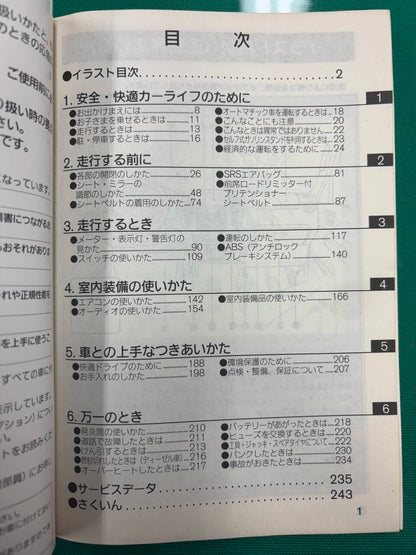 扱いかたと
のときの応
ご使用前に
り扱い時の
さい。
です。
になっています。
傷害につながるお
るおそれがありま
れや正規性能を
を上手に使うこ
すべての車に付
示しています。
クション)につい
トをお読みくだ
部員)にお申し
付けておい
がありますので
目 次
●イラスト目次 2
1. 安全・快適カーライフのために 1
●お出かけまえには 8
●お子さまを乗せるときは 11
●走行するときは 13
●駐・停車するときは 16
●オートマチック車を運転するときは 18
●こんなことにも注意 20
●こんなときは異常ではありません 22
●セルフ式ガソリンスタンドを利用するときは 23
●経済的な運転をするために 24
2. 走行する前に 2
●各部の開閉のしかた 26
●シート・ミラーの
調節のしかた 48
●シートベルトの着用のしかた 74
●SRSエアバッグ 81
●前席ロードリミッター付
プリテンショナー
シートベルト 87
3. 走行するとき 3
●メーター・表示灯・警告灯の
見かた 90
●スイッチの使いかた 109
●運転のしかた 117
●ABS(アンチロック
ブレーキシステム) 140
4. 室内装備の使いかた 4
●エアコンの使いかた 142
●オーディオの使いかた 154
●室内装備品の使いかた 166
5. 車との上手なつきあいかた 5
●快適ドライブのために 188
●お手入れのしかた 198
●環境保護のために 206
●点検・整備、保証について 207
6. 万一のとき 6
●発炎筒の使いかた 210
●道路で故障したときは 211
●けん引するときは 213
●燃料切れしたときは(ディーゼル車) 216
●オーバーヒートしたときは 217
●バッテリーがあがったときは 218
●ヒューズを交換するときは 220
●工具・ジャッキ・スペアタイヤについて 222
●パンクしたときは 230
●事故がおきたときは 234
●サービスデータ 235
●さくいん 243
1